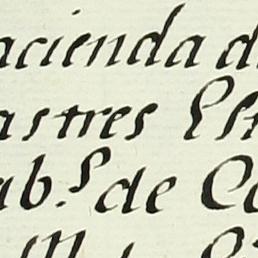 acienda d
astres Est
ab.s de Co